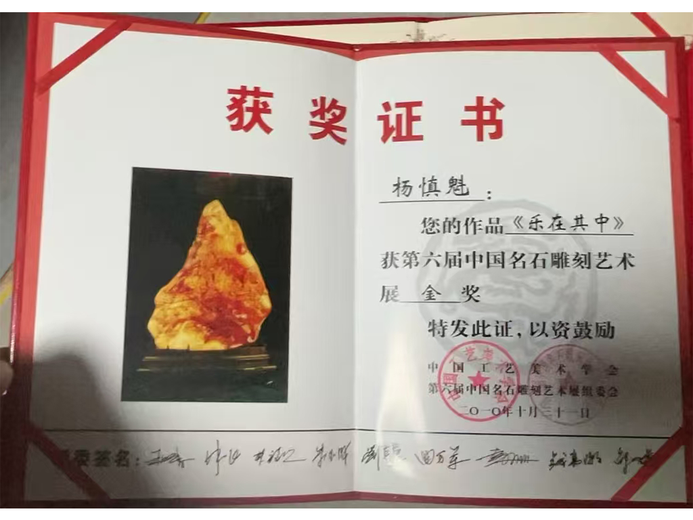 获奖证书
杨慎魁：
您的作品《乐在其中》
获第六届中国名石雕刻艺术
展 金 奖
特发此证，以资鼓励
中国工艺美术学会
第六届中国名石雕刻艺术展组委会
二〇一〇年十月三十一日
委签名：